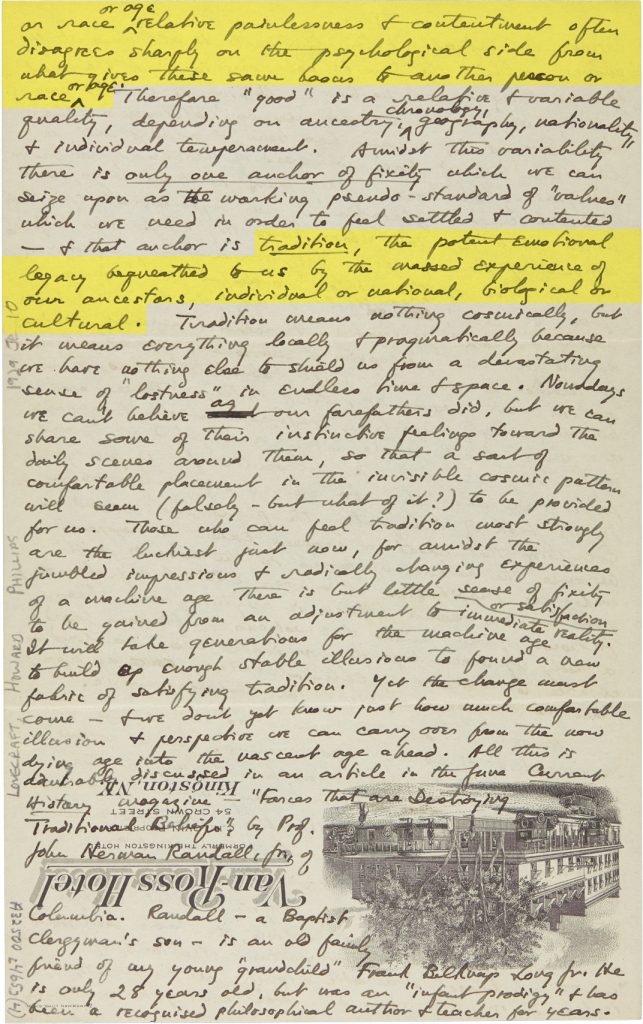 or age
or race relative painlessness & contentment often
disagrees sharply on the psychological side from
what gives these same boons to another person or
race or age. Therefore "good" is a relative & variable
quality, depending on ancestry, chronology, geography, nationality,
& individual temperament. Amidst this variability
there is only one anchor of fixity which we can
seize upon as the working pseudo-standard of "values"
which we need in order to feel settled & contented
— & that anchor is tradition, the potent emotional
legacy bequeathed to us by the massed experience of
our ancestors, individual or national, biological or
cultural. Tradition means nothing cosmically, but
it means everything locally & pragmatically because
we have nothing else to shield us from a devastating
sense of "lostness" in endless time & space. Nowadays
we can't believe as our forefathers did, but we can
share some of their instinctive feelings toward the
daily scenes around them, so that a sort of
comfortable placement in the invisible cosmic pattern
will seem (falsely - but what of it?) to be provided
for us. Those who can feel tradition most strongly
are the luckiest just now, for amidst the
jumbled impressions & radically changing experiences
of a machine age there is but little sense of fixity
or satisfaction
to be gained from an adjustment to immediate reality.
It will take generations for the machine age
to build up enough stable illusions to found a new
fabric of satisfying tradition. Yet the change must
come — & we don't yet know just how much comfortable
illusion & perspective we can carry over from the now
dying age into the nascent age ahead. All this is
admirably discussed in an article in the June Current
History magazine — "Forces that are Destroying
Traditional Beliefs", by Prof.
John Herman Randall, Jr., of
Columbia. Randall — a Baptist
clergyman's son — is an old family
friend of my young "grandchild" Frank Belknap Long Jr. He
is only 28 years old, but was an "infant prodigy" & has
been a recognised philosophical author & teacher for years.
Van-Ross Hotel
54 CROWN STREET
Kingston, N.Y.
LOVECRAFT, HOWARD PHILLIPS